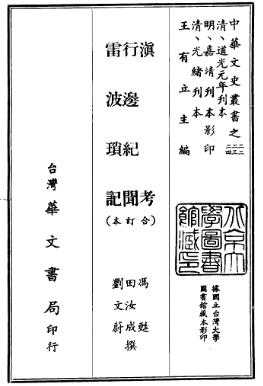 中華文史叢書之
清、道光元年刊本
明、嘉靖刊本影印
清、光緒刊本
王有立主編
據國立台灣大學
圖書館藏本影印
滇考
行邊紀聞
雷波瑣記
（合訂本）
馮甦
田汝成
劉文蔚
撰
台灣華文書局印行